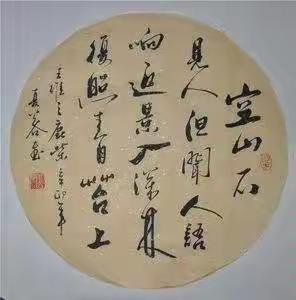 空山不
見人但聞人語
响返景入深林
復照青苔上
王維之鹿柴辛卯年